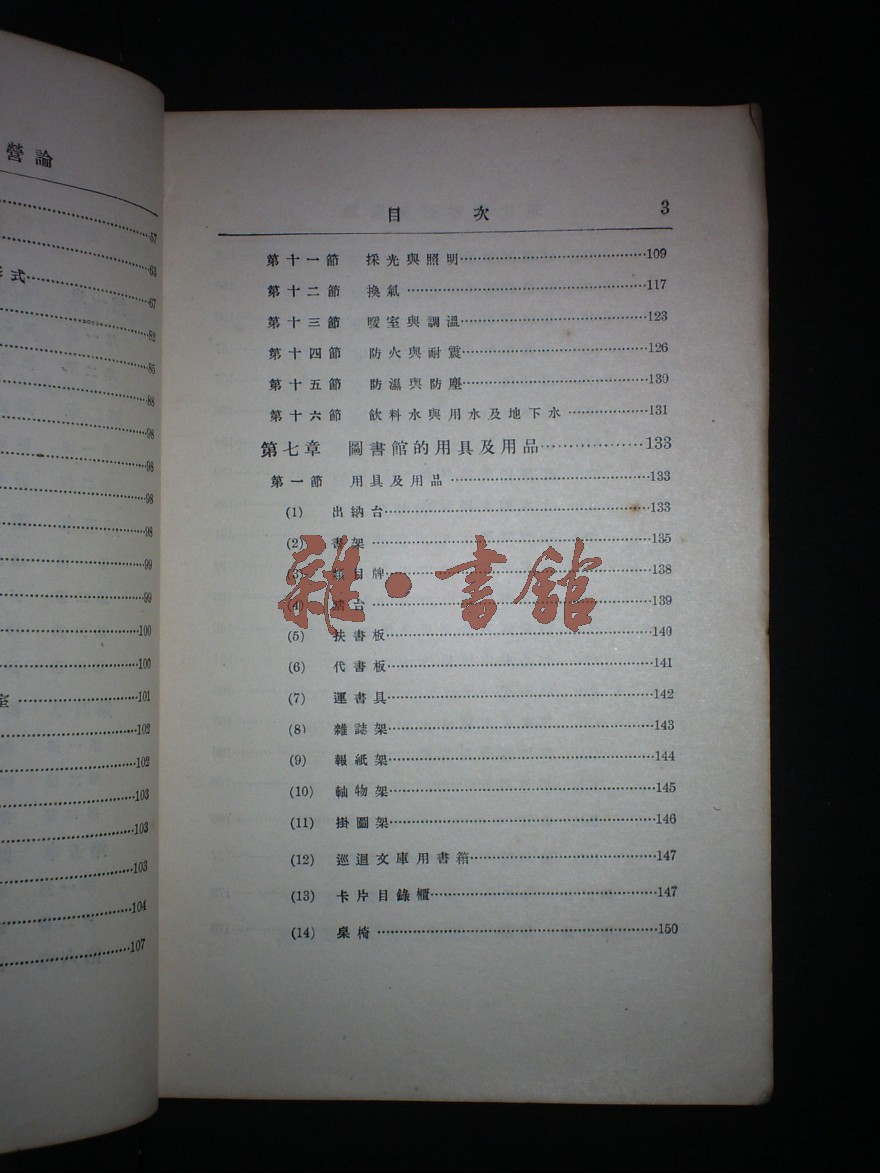 營論
57
63
式
67
82
85
88
98
98
98
98
99
99
100
100
101
102
102
103
103
103
104
107
目次 3
第十一節 採光與照明 109
第十二節 換氣 117
第十三節 暖室與調溫 123
第十四節 防火與耐震 126
第十五節 防濕與防塵 130
第十六節 飲料水與用水及地下水 131
第七章 圖書館的用具及用品 133
第一節 用具及用品 133
(1) 出納台 133
(2) 書架 135
(3) 類目牌 138
(4) 台 139
(5) 扶書板 140
(6) 代書板 141
(7) 運書具 142
(8) 雜誌架 143
(9) 報紙架 144
(10) 軸物架 145
(11) 掛圖架 146
(12) 巡迴文庫用書箱 147
(13) 卡片目錄櫃 147
(14) 桌椅 150
雜·書館